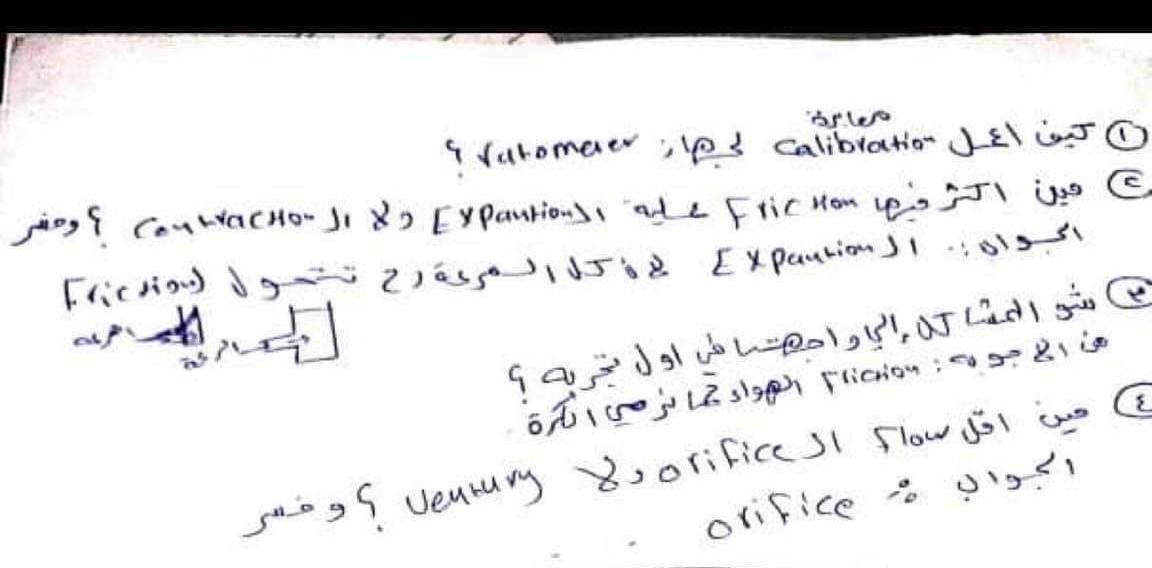 معايرة
① كيف اعمل Calibration لجهاز rutometer ؟
② مين اكثر فيهم Friction عليه الـ Expantion ولا الـ Contraction ؟ وفسر
الجواب : الـ Expantion لأنه كل السرعة رح تتحول لـ Friction
③ شو المشاكل الي واجهتنا في اول تجربة ؟
من الاجوبة : Friction الهواء لما نرمي الكرة
④ مين اقل Flow الـ orifice ولا Ventury ؟ وفسر
الجواب : orifice